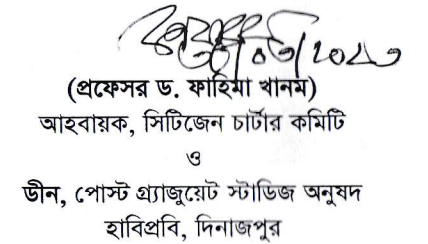 (প্রফেসর ড. ফাহিমা খানম)
আহবায়ক, সিটিজেন চার্টার কমিটি
ও
ডীন, পোস্ট গ্র্যাজুয়েট স্টাডিজ অনুষদ
হাবিপ্রবি, দিনাজপুর